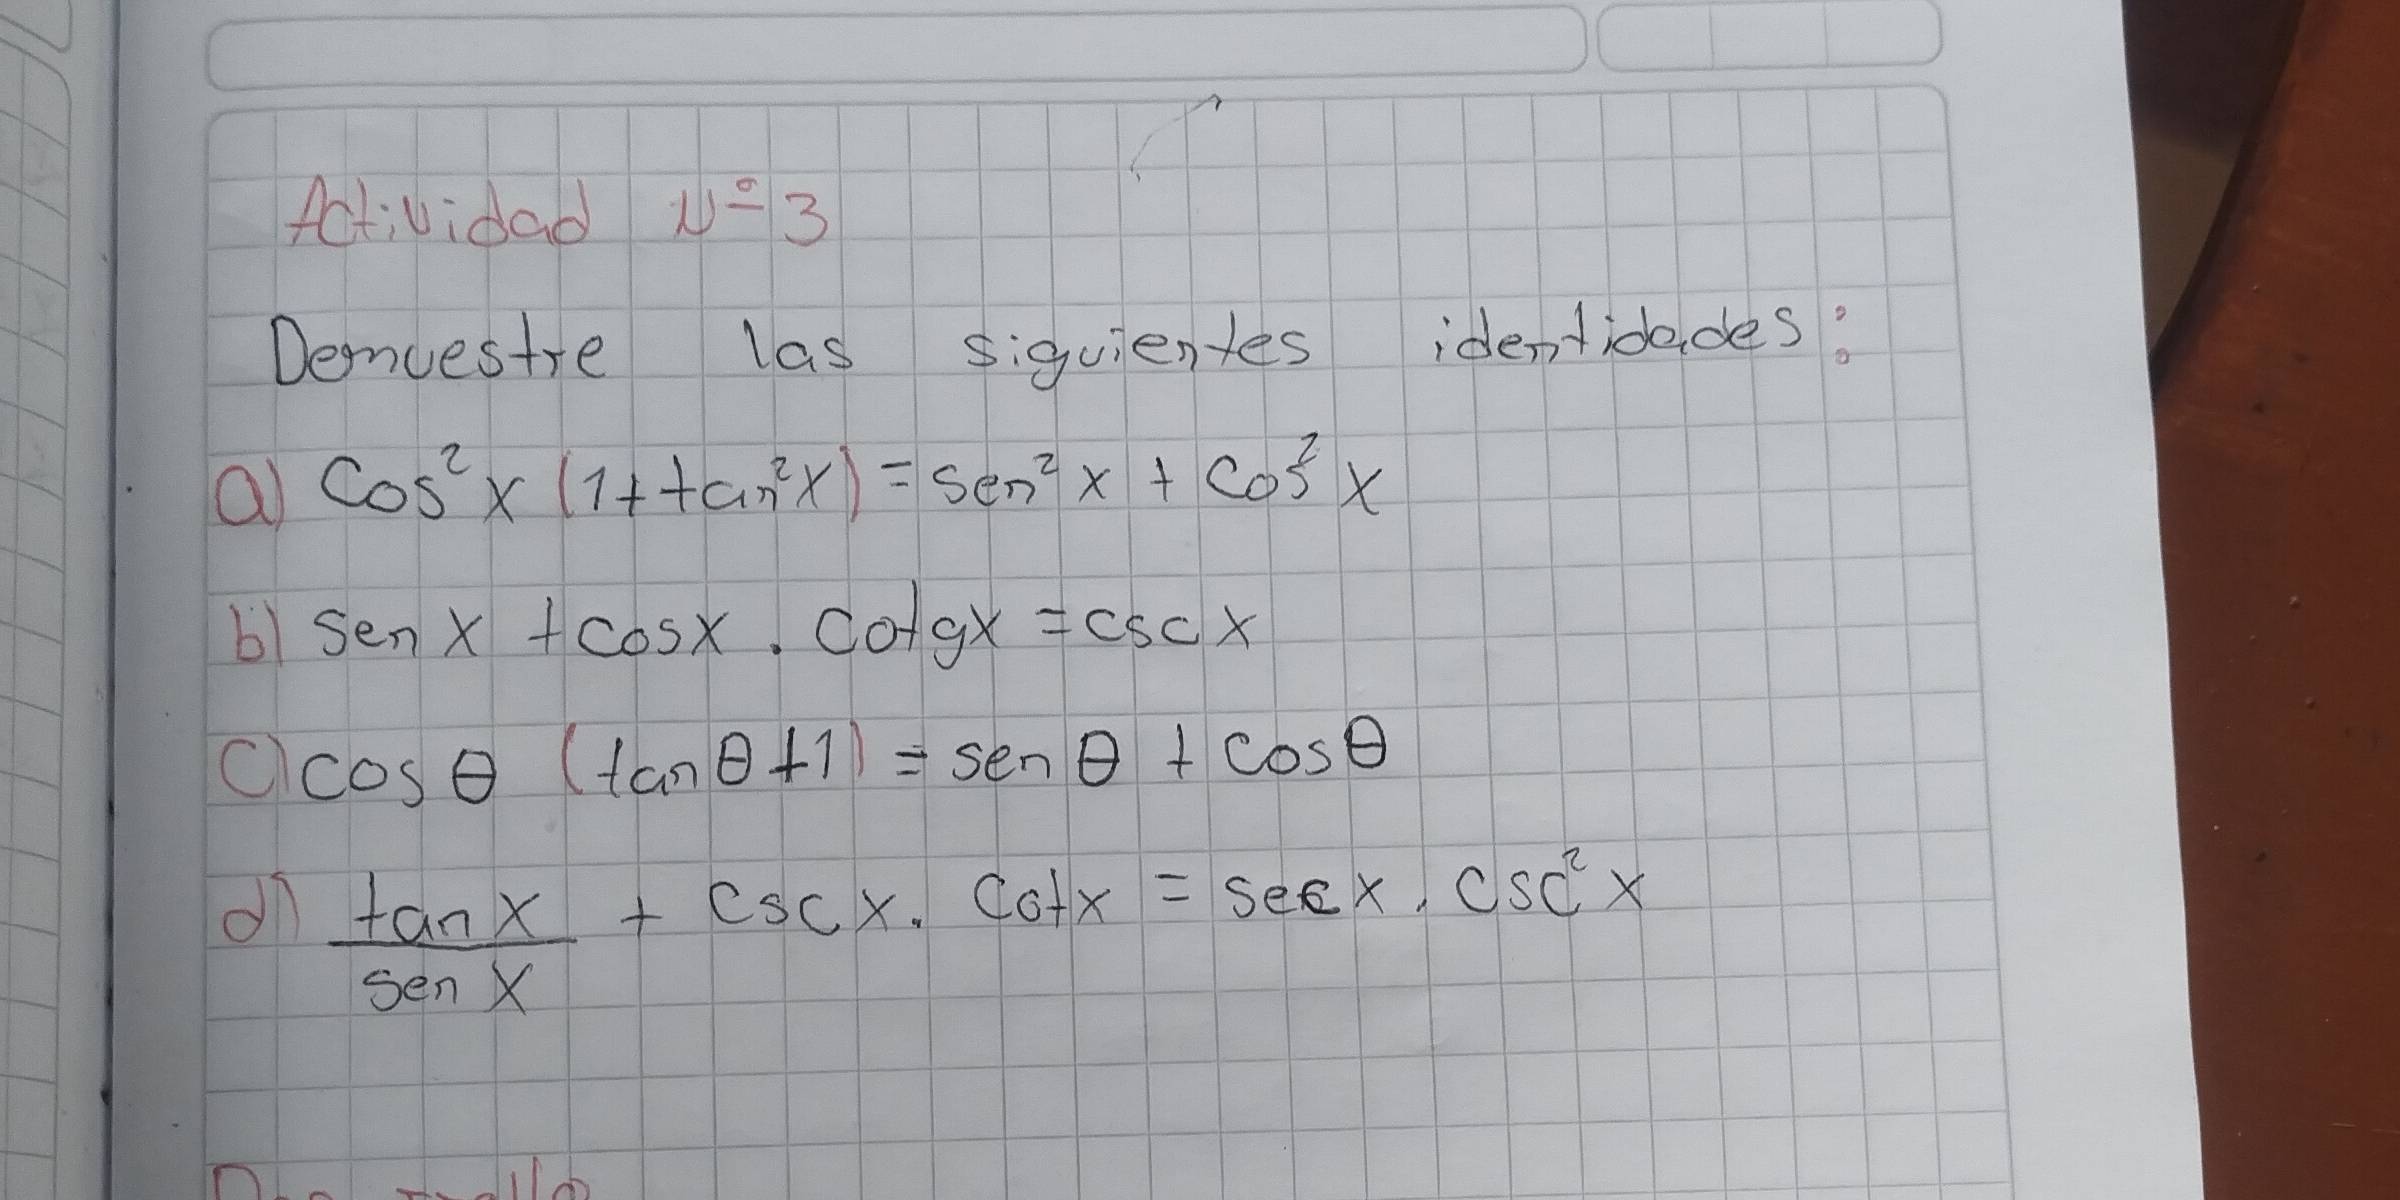 Actividad Nº 3
Demuestre las siguientes identidades:
a) Cos² x (1 + tan² x) = sen² x + Cos² x
b) sen x + cos x . Cotg x = csc x
c) cos θ (tan θ + 1) = sen θ + cos θ
d) tan x / sen x + csc x . Cot x = sec x . csc² x